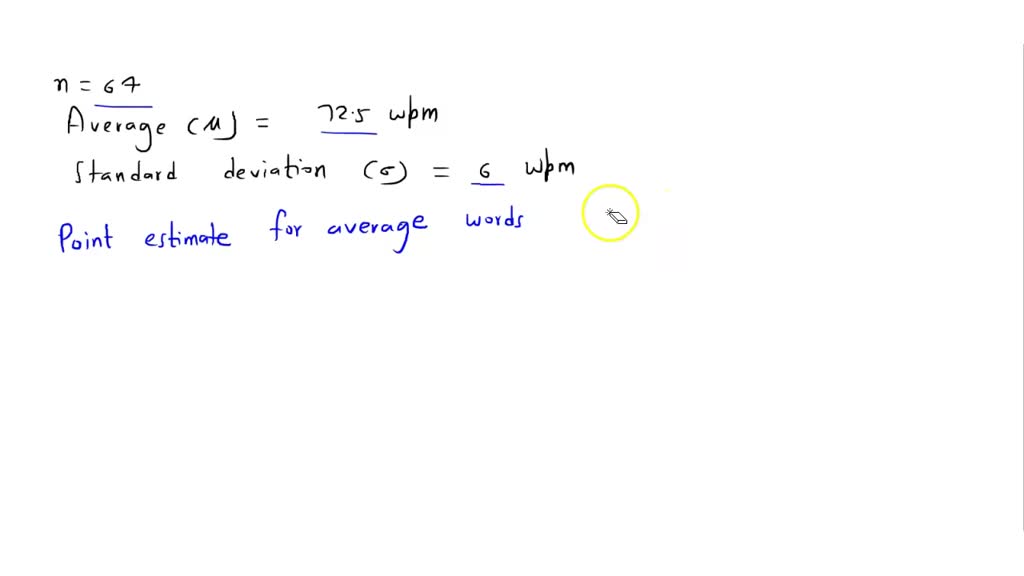 n = 64
Average (μ) = 72.5 wpm
Standard deviation (σ) = 6 wpm
Point estimate for average words